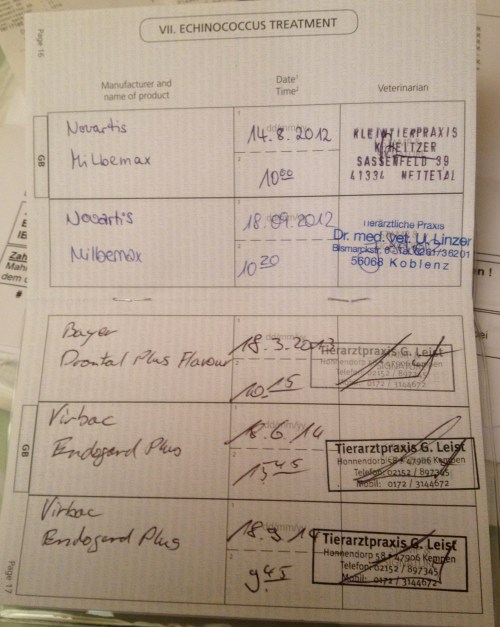 Page 16
VII. ECHINOCOCCUS TREATMENT
Manufacturer and
name of product
Date¹
Time²
Veterinarian
GB
Novartis
Milbemax
1
14.8.2012
2
10⁰⁰
KLEINTIERPRAXIS
K.HEITZER
SASSENFELD 39
41334 NETTETAL
Novartis
Milbemax
1
18.09.2012
2
10²⁰
Tierärztliche Praxis
Dr. med. vet. U. Linzer
Bismarckstr.
56068 Koblenz
GB
Bayer
Drontal Plus Flavour
18.3.2013
10.15
Tierarztpraxis G. Leist
Honnendorp 58 • 47906 Kempen
Telefon: 02152 / 897345
Mobil: 0172 / 3144672
Virbac
Endogard Plus
18.6.14
15.45
Tierarztpraxis G. Leist
Honnendorp 58 • 47906 Kempen
Telefon: 02152 / 897345
Mobil: 0172 / 3144672
Virbac
Endogard Plus
18.9.14
2
9.45
Tierarztpraxis G. Leist
Honnendorp 58 • 47906 Kempen
Telefon: 02152 / 897345
Mobil: 0172 / 3144672
Page 17